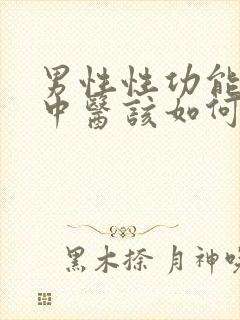 男性性功能
中醫該如何
黑木捺 月神